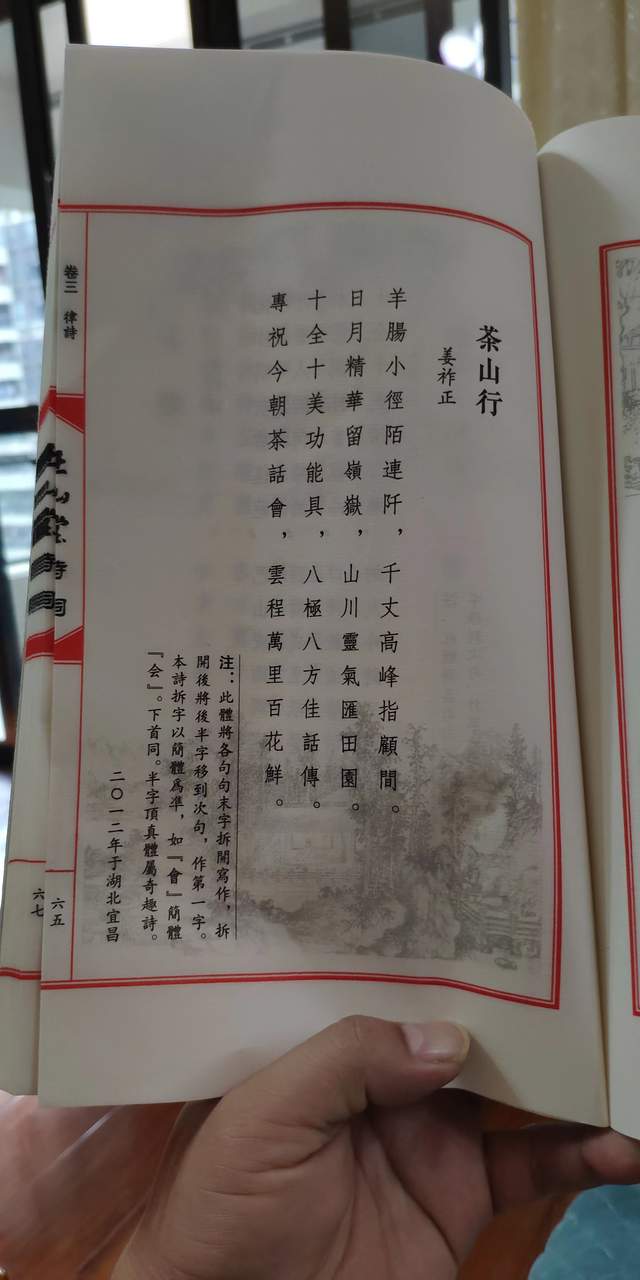 茶山行
姜祚正
羊腸小徑陌連阡，千丈高峰指顧間。
日月精華留嶺嶽，山川靈氣匯田園。
十全十美功能具，八極八方佳話傳。
專祝今朝茶話會，雲程萬里百花鮮。
注：此體將各句句末字拆開寫作，拆
開後將後半字移到次句，作第一字。
本詩拆字以簡體爲準，如『會』簡體
『会』。下首同。半字頂真體屬奇趣詩。
二〇一二年于湖北宜昌
卷三 律詩
六五
六七